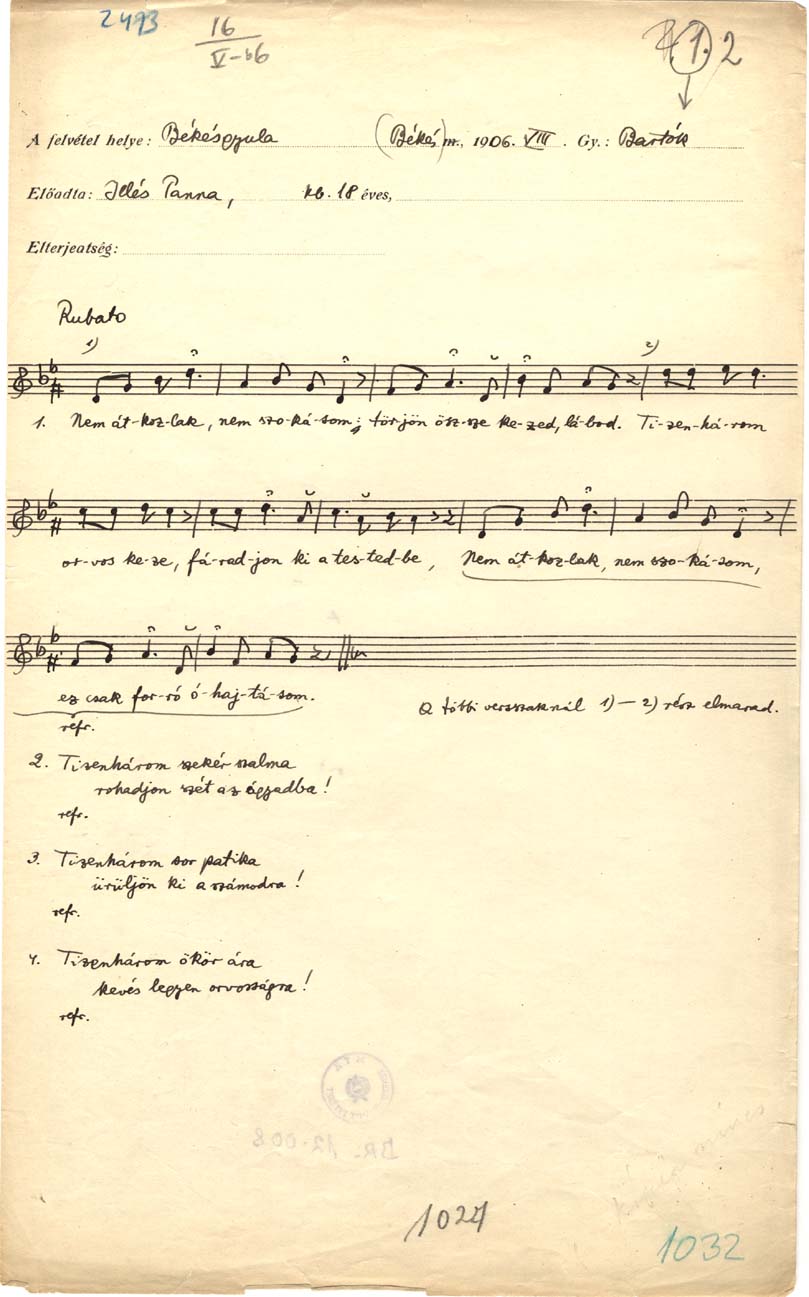 2493
16
V-66
1. 2
A felvétel helye: Békésgyula (Békés) m., 1906. VIII. Gy.: Bartók
Előadta: Illés Panna, kb. 18 éves,
Elterjeatség:
Rubato
1) 2)
1. Nem át-koz-lak, nem szo-ká-som; tör-jön ösz-sze ke-zed, lá-bod. Ti-zen-há-rom
or-vos ke-ze, fá-rad-jon ki a tes-ted-be, Nem át-koz-lak, nem szo-ká-som,
ez csak for-ró ó-haj-tá-som.
A többi versszaknál 1) — 2) rész elmarad.
refr.
2. Tizenhárom szekér szalma
rohadjon szét az ágyadba!
refr.
3. Tizenhárom sor patika
ürüljön ki a számodra!
refr.
4. Tizenhárom ökör ára
kevés legyen orvosságra!
refr.
BR. 12.008
1024
1032